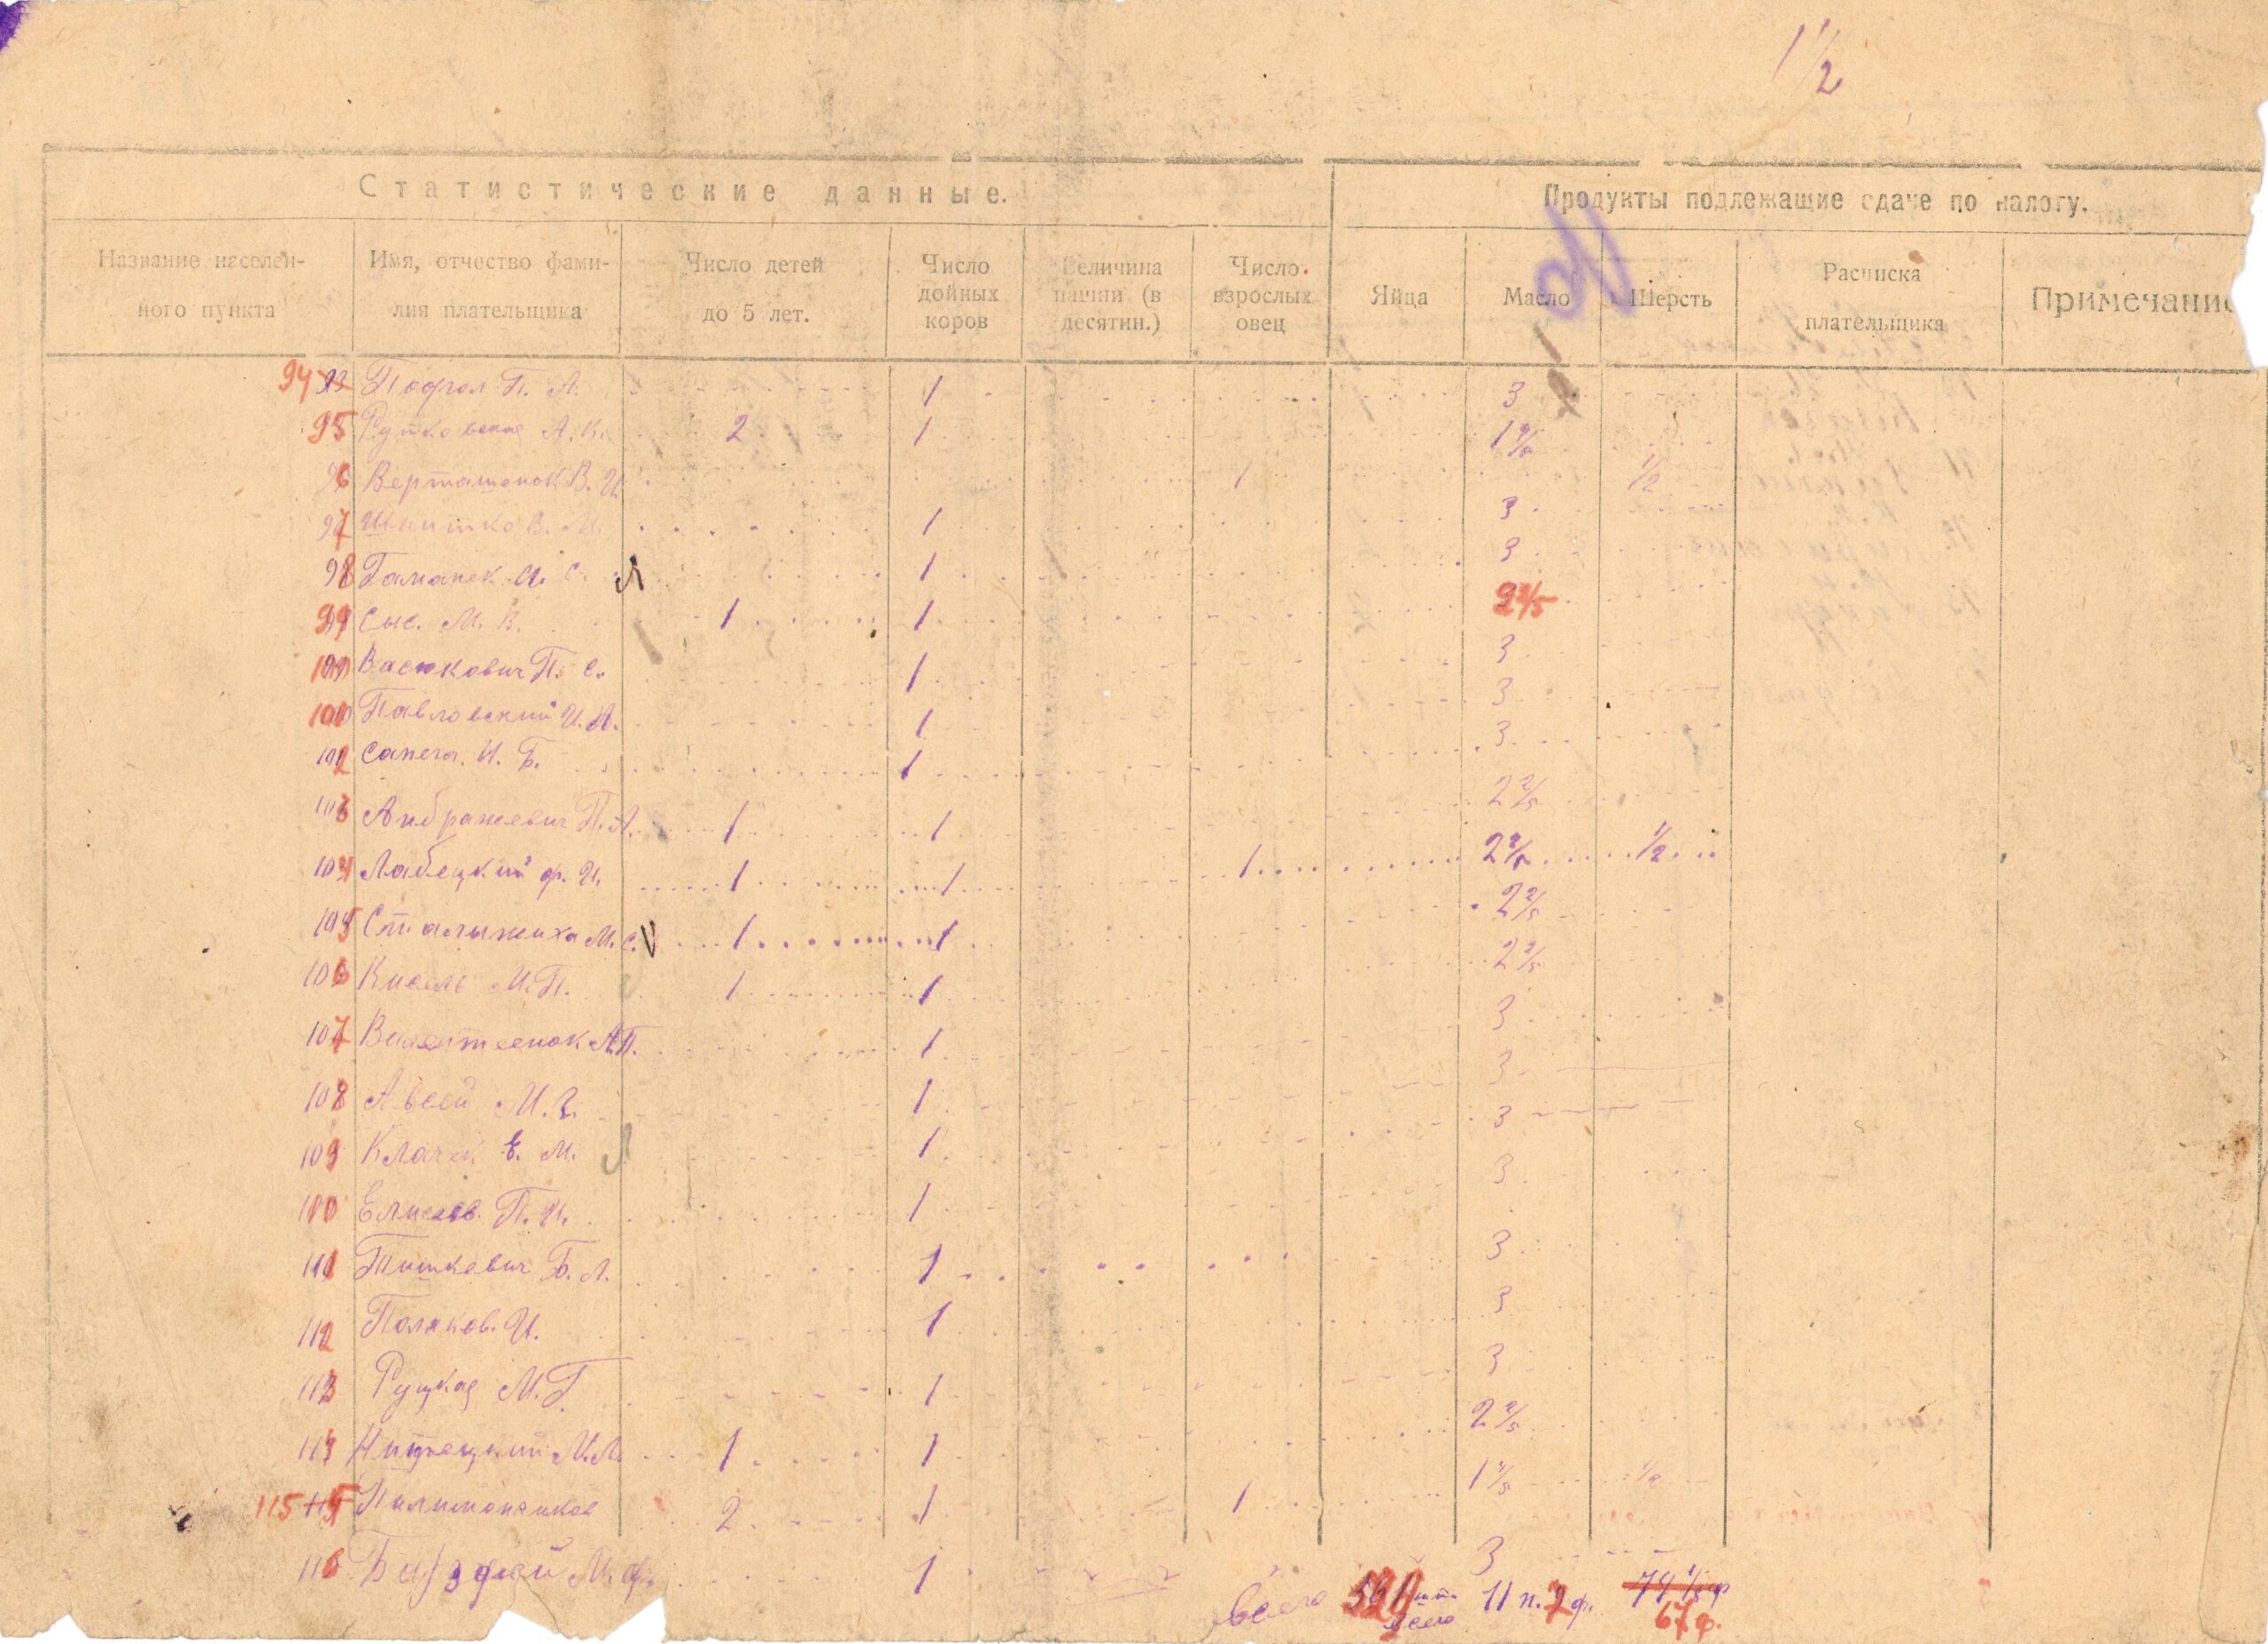 1 1/2
Статистические данные.
Продукты подлежащие сдаче по налогу.
Название населен-ного пункта
Имя, отчество фами-лия плательщика
Число детей до 5 лет.
Число дойных коров
Величина пашни (в десятин.)
Число взрослых овец
Яйца
Масло
Шерсть
Расписка плательщика
Примечание
94 П. А. 1 3
95 Рутковская А. К. 2 1 1 4/5
96 Верташенок В. И. 1 1/2
97 Шпитко В. И. 1 3
98 Гаманек И. С. 1 3
99 Сыс. М. В. 1 1 2 2/5
100 Васюкович П. С. 1 3
101 Павловский И. А. 1 3
102 Сапега. И. Б. 1 3
103 Андрашевич П. А. 1 1 2 2/5
104 Лабецкий Ф. И. 1 1 1 2 2/5 1/2
105 М. С. 1 1 2 2/5
106 Кисель М. П. 1 1 2 2/5
107 А. П. 1 3
108 Авсей М. 1 3
109 Клачек Е. М. 1 3
110 Елисеев. П. И. 1 3
111 Тишкевич Б. Л. 1 3
112 Поляков. И. 1 3
113 Руцкая М. Г. 1 3
М. Л. 1 1 2 2/5
115 2 1 1 1 4/5 1/2
116 М. Ф. 1 3
Всего шт. 11 п. ф. 74 1/2 ф
Всего 67 ф.